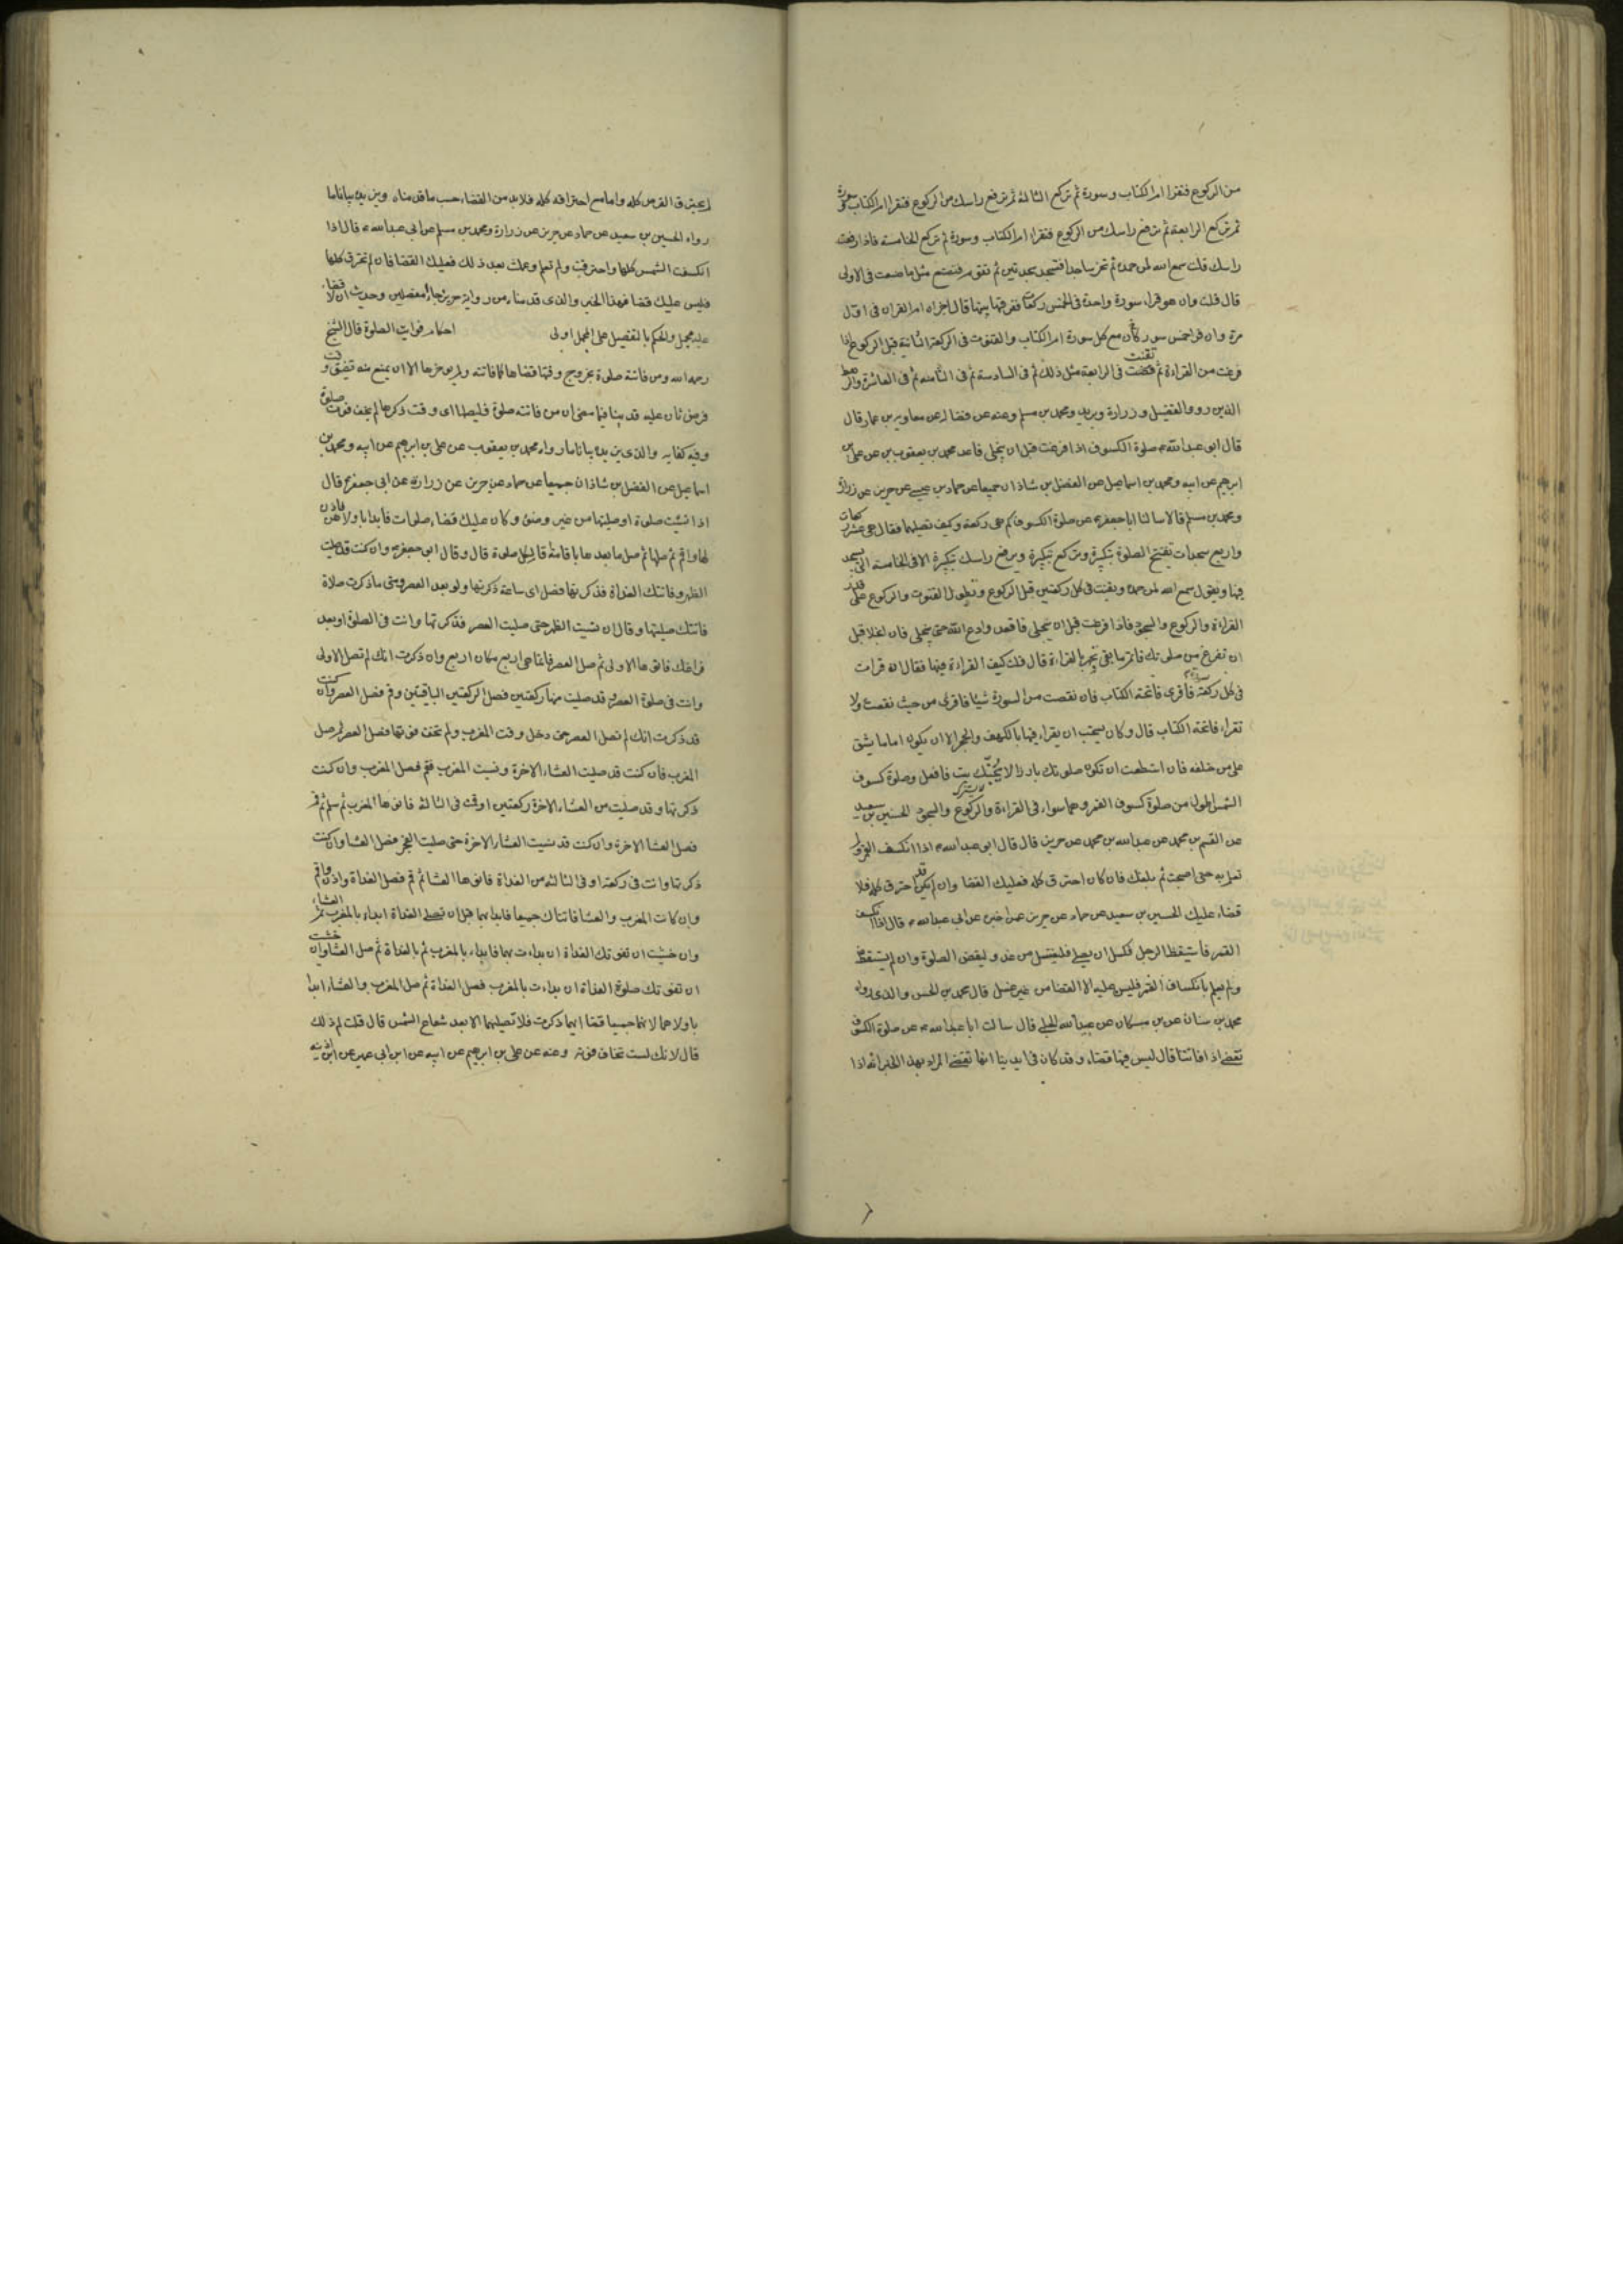 من الركوع فتقرا ام الكتاب وسورة ثم تركع الثالثة ثم ترفع راسك من الركوع فتقرا ام الكتاب وسورة
ثم تركع الرابعة ثم ترفع راسك من الركوع فتقرا ام الكتاب وسورة ثم تركع الخامسة فاذا رفعت
راسك قلت سمع الله لمن حمده ثم تخر ساجدا فتسجد سجدتين ثم تقوم فتصنع مثل ما صنعت في الاولى
قال قلت وان هو قراء سورة واحدة في الخمس ركعات ففرقها بينها قال اجزاه ام القران في اول
مرة وان قرا خمس سور كان مع كل سورة ام الكتاب والقنوت في الركعة الثانية قبل الركوع اذا
فرغت من القراءة ثم تقنت في الرابعة مثل ذلك ثم في السادسة ثم في الثامنة ثم في العاشرة والرهط
الذين رووه الفضيل وزرارة وبريد ومحمد بن مسلم وعنه عن فضالة عن معاوية بن عمار قال
قال ابو عبد الله ع صلوة الكسوف اذا فرغت قبل ان ينجلي فاعد محمد بن يعقوب عن علي بن
ابرهيم عن ابيه ومحمد بن اسماعيل عن الفضل بن شاذان جميعا عن حماد بن عيسى عن حريز عن زرارة
ومحمد بن مسلم قالا سالنا ابا جعفر ع عن صلوة الكسوف كم هي ركعة وكيف نصليها فقال هي عشر ركعات
واربع سجدات تفتتح الصلوة بتكبيرة وتركع بتكبيرة وترفع راسك بتكبيرة الا في الخامسة التي تسجد
فيها وتقول سمع الله لمن حمده وتقنت في كل ركعتين قبل الركوع وتطول القنوت والركوع على قدر
القراءة والركوع والسجود فاذا فرغت قبل ان ينجلي فاقعد وادع الله حتى ينجلي فان انجلا قبل
ان تفرغ من صلوتك فاتم ما بقي تجهر بالقراءة قال قلت كيف القراءة فيها فقال ان قرات
في كل ركعة سورة فاقرء فاتحة الكتاب فان نقصت من السورة شيئا فاقرء من حيث نقصت ولا
تقراء فاتحة الكتاب قال وكان يستحب ان يقراء فيها بالكهف والحجر الا ان يكون اماما يشق
على من خلفه فان استطعت ان تكون صلوتك بارزا لا يجنك بيت فافعل وصلوة كسوف
الشمس اطول من صلوة كسوف القمر وهما سواء في القراءة والركوع والسجود الحسين بن سعيد
عن القسم بن محمد عن عبد الله بن محمد عن حريز قال قال ابو عبد الله ع اذا انكسف القمر ولم
تعلم به حتى اصبحت ثم بلغك فان كان احترق كله فعليك القضا وان لم يكن احترق كله فلا
قضاء عليك الحسين بن سعيد عن حماد عن حريز عمن اخبره عن ابي عبد الله ع قال اذا انكسف
القمر فاستيقظ الرجل فكسل ان يصلي فليغتسل من غد وليقض الصلوة وان لم يستيقظ
ولم يعلم بانكساف القمر فليس عليه الا القضا من غير غسل قال محمد بن الحسن والذي رواه
محمد بن سنان عن بن مسكان عن عبيد الله الحلبي قال سالت ابا عبد الله ع عن صلوة الكسوف
تقضي اذا فاتتنا قال ليس فيها قضاء وقد كان في ايدينا انها تقضى المراد بهذا الخبر انه اذا
لم يحترق القرص كله واما مع احتراقه كله فلابد من القضاء حسب ما قدمناه ويزيده بيانا ما
رواه الحسين بن سعيد عن حماد عن حريز عن زرارة ومحمد بن مسلم عن ابي عبد الله ع قال اذا
انكسفت الشمس كلها واحترقت ولم تعلم وعلمت بعد ذلك فعليك القضا فان لم تحترق كلها
فليس عليك قضا فهذا الخبر والذي قدمناه من رواية حريز جاءا مفصلين وحديث ان لا قضاء
عليه مجمل والحكم بالمفصل على المجمل اولى احكام فوايت الصلوة قال الشيخ
رحمه الله ومن فاتته صلوة بخروج وقتها قضاها كما فاتته ولم يؤخرها الا ان يمنع منه تضيق وقت
فرض ثان عليه قد بينا فيما مضى ان من فاتته صلوة فليصلها اي وقت ذكرها ما لم يخف فوت صلوة
وفيه كفاية والذي يزيده بيانا ما رواه محمد بن يعقوب عن علي بن ابرهيم عن ابيه ومحمد بن
اسماعيل عن الفضل بن شاذان جميعا عن حماد عن حريز عن زرارة عن ابي جعفر ع قال
اذا نسيت صلوة او صليتها من غير وضوء وكان عليك قضاء صلوات فابدا باولاهن فاذن
لها واقم ثم صلها ثم صل ما بعدها باقامة اقامة لكل صلوة قال وقال ابو جعفر ع وان كنت قد صليت
الظهر وفاتتك الغداة فذكرتها فصل اي ساعة ذكرتها ولو بعد العصر ومتى ما ذكرت صلاة
فاتتك صليتها وقال ان نسيت الظهر حتى صليت العصر فذكرتها وانت في الصلوة او بعد
فراغك فانوها الاولى ثم صل العصر فانما هي اربع مكان اربع وان ذكرت انك لم تصل الاولى
وانت في صلوة العصر وقد صليت منها ركعتين فصل الركعتين الباقيتين وقم فصل العصر وان كنت
قد ذكرت انك لم تصل العصر حتى دخل وقت المغرب ولم تخف فوتها فصل العصر ثم صل
المغرب فان كنت قد صليت العشاء الاخرة ونسيت المغرب فقم فصل المغرب وان كنت
ذكرتها وقد صليت من العشاء الاخرة ركعتين او قمت في الثالثة فانوها المغرب ثم سلم ثم قم
فصل العشا الاخرة وان كنت قد نسيت العشاء الاخرة حتى صليت الفجر فصل العشا وان كنت
ذكرتها وانت في ركعة او في الثانية من الغداة فانوها العشا ثم قم فصل الغداة واذن واقم
وان كانت المغرب والعشا فاتتاك جميعا فابدا بهما قبل ان تصلي الغداة ابداء بالمغرب ثم العشاء
وان خشيت ان تفوتك الغداة ان بداءت بهما فابداء بالمغرب ثم بالغداة ثم صل العشا وان خشيت
ان تفوتك صلوة الغداة ان بداءت بالمغرب فصل الغداة ثم صل المغرب والعشاء ابدا
باولاهما لانهما جميعا قضا ايهما ذكرت فلا تصليهما الا بعد شعاع الشمس قال قلت لم ذلك
قال لانك لست تخاف فوته وعنه عن علي بن ابرهيم عن ابيه عن ابن ابي عمير عن ابن اذينه